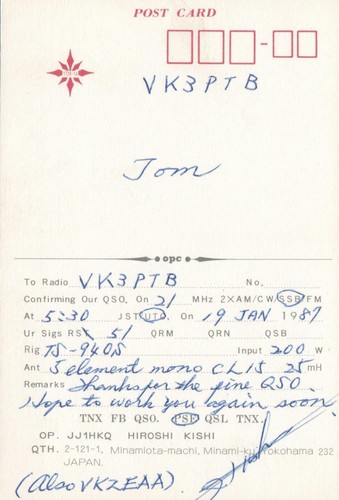 POST CARD
VK3PTB
Tom
opc
To Radio VK3PTB No.
Confirming Our QSO, On 21 MHz 2XAM/CW/SSB/FM
At 5:30 JST/UTC On 19 JAN 1987
Ur Sigs RST 51 QRM QRN QSB
Rig TS-940S Input 200 W
Ant 5 element mono CL15 25mH
Remarks Thanks for the fine QSO.
Hope to work you again soon
TNX FB QSO. PSE QSL TNX.
OP. JJ1HKQ HIROSHI KISHI
QTH. 2-121-1, Minamiota-machi, Minami-ku, Yokohama 232
JAPAN.
(Also VK2EAA)